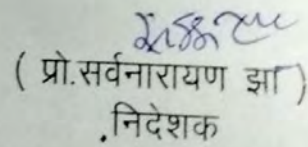 ( प्रो.सर्वनारायण झा )
.निदेशक